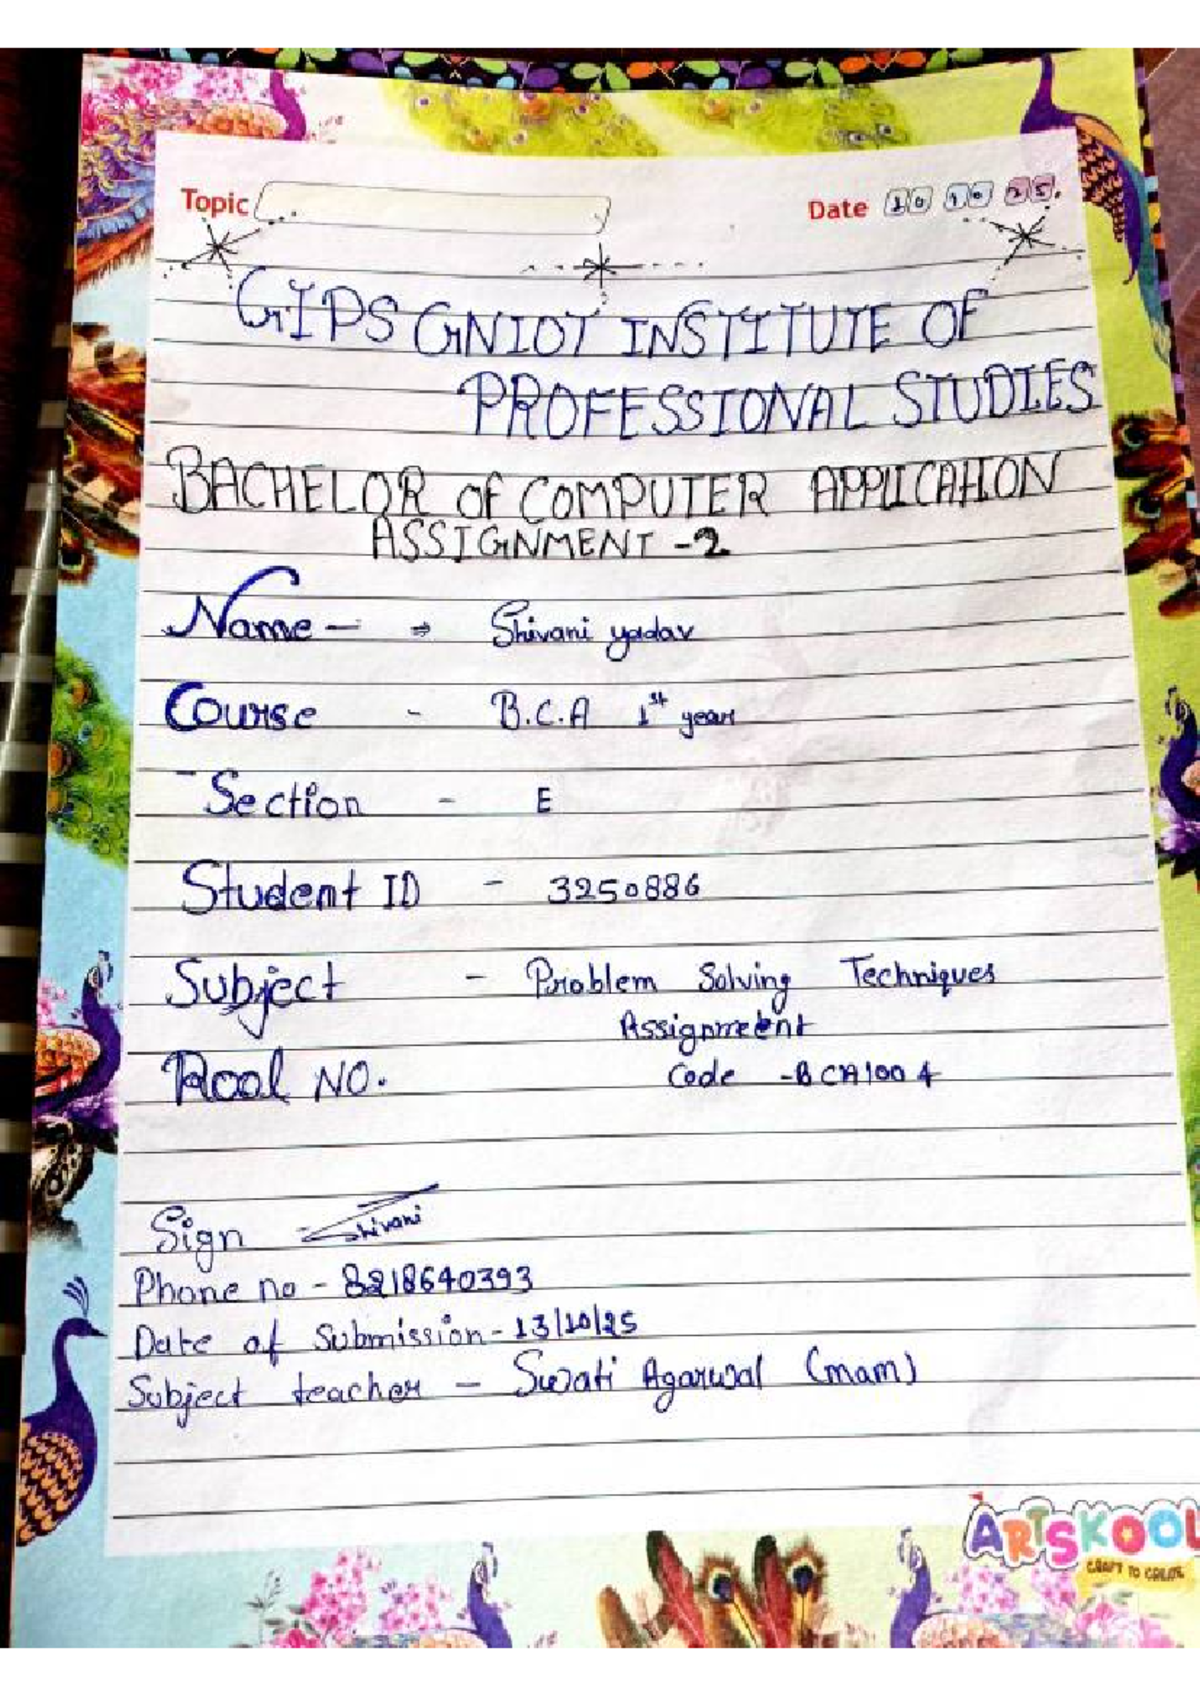 Topic
Date 10 10 25.
GIPS GNIOT INSTITUTE OF
PROFESSIONAL STUDIES
BACHELOR OF COMPUTER APPLICATION
ASSIGNMENT -2
Name - ⇒ Shivani yadav
Course - B.C.A 1st year
Section - E
Student ID - 3250886
Subject - Problem Solving Techniques
Assignment
Rool NO. Code -BCA1004
Sign Shivani
Phone no - 8218640393
Date of Submission - 13/10/25
Subject teacher - Swati Agarwal (mam)
ARTSKOOL
CRAFT TO CREATE